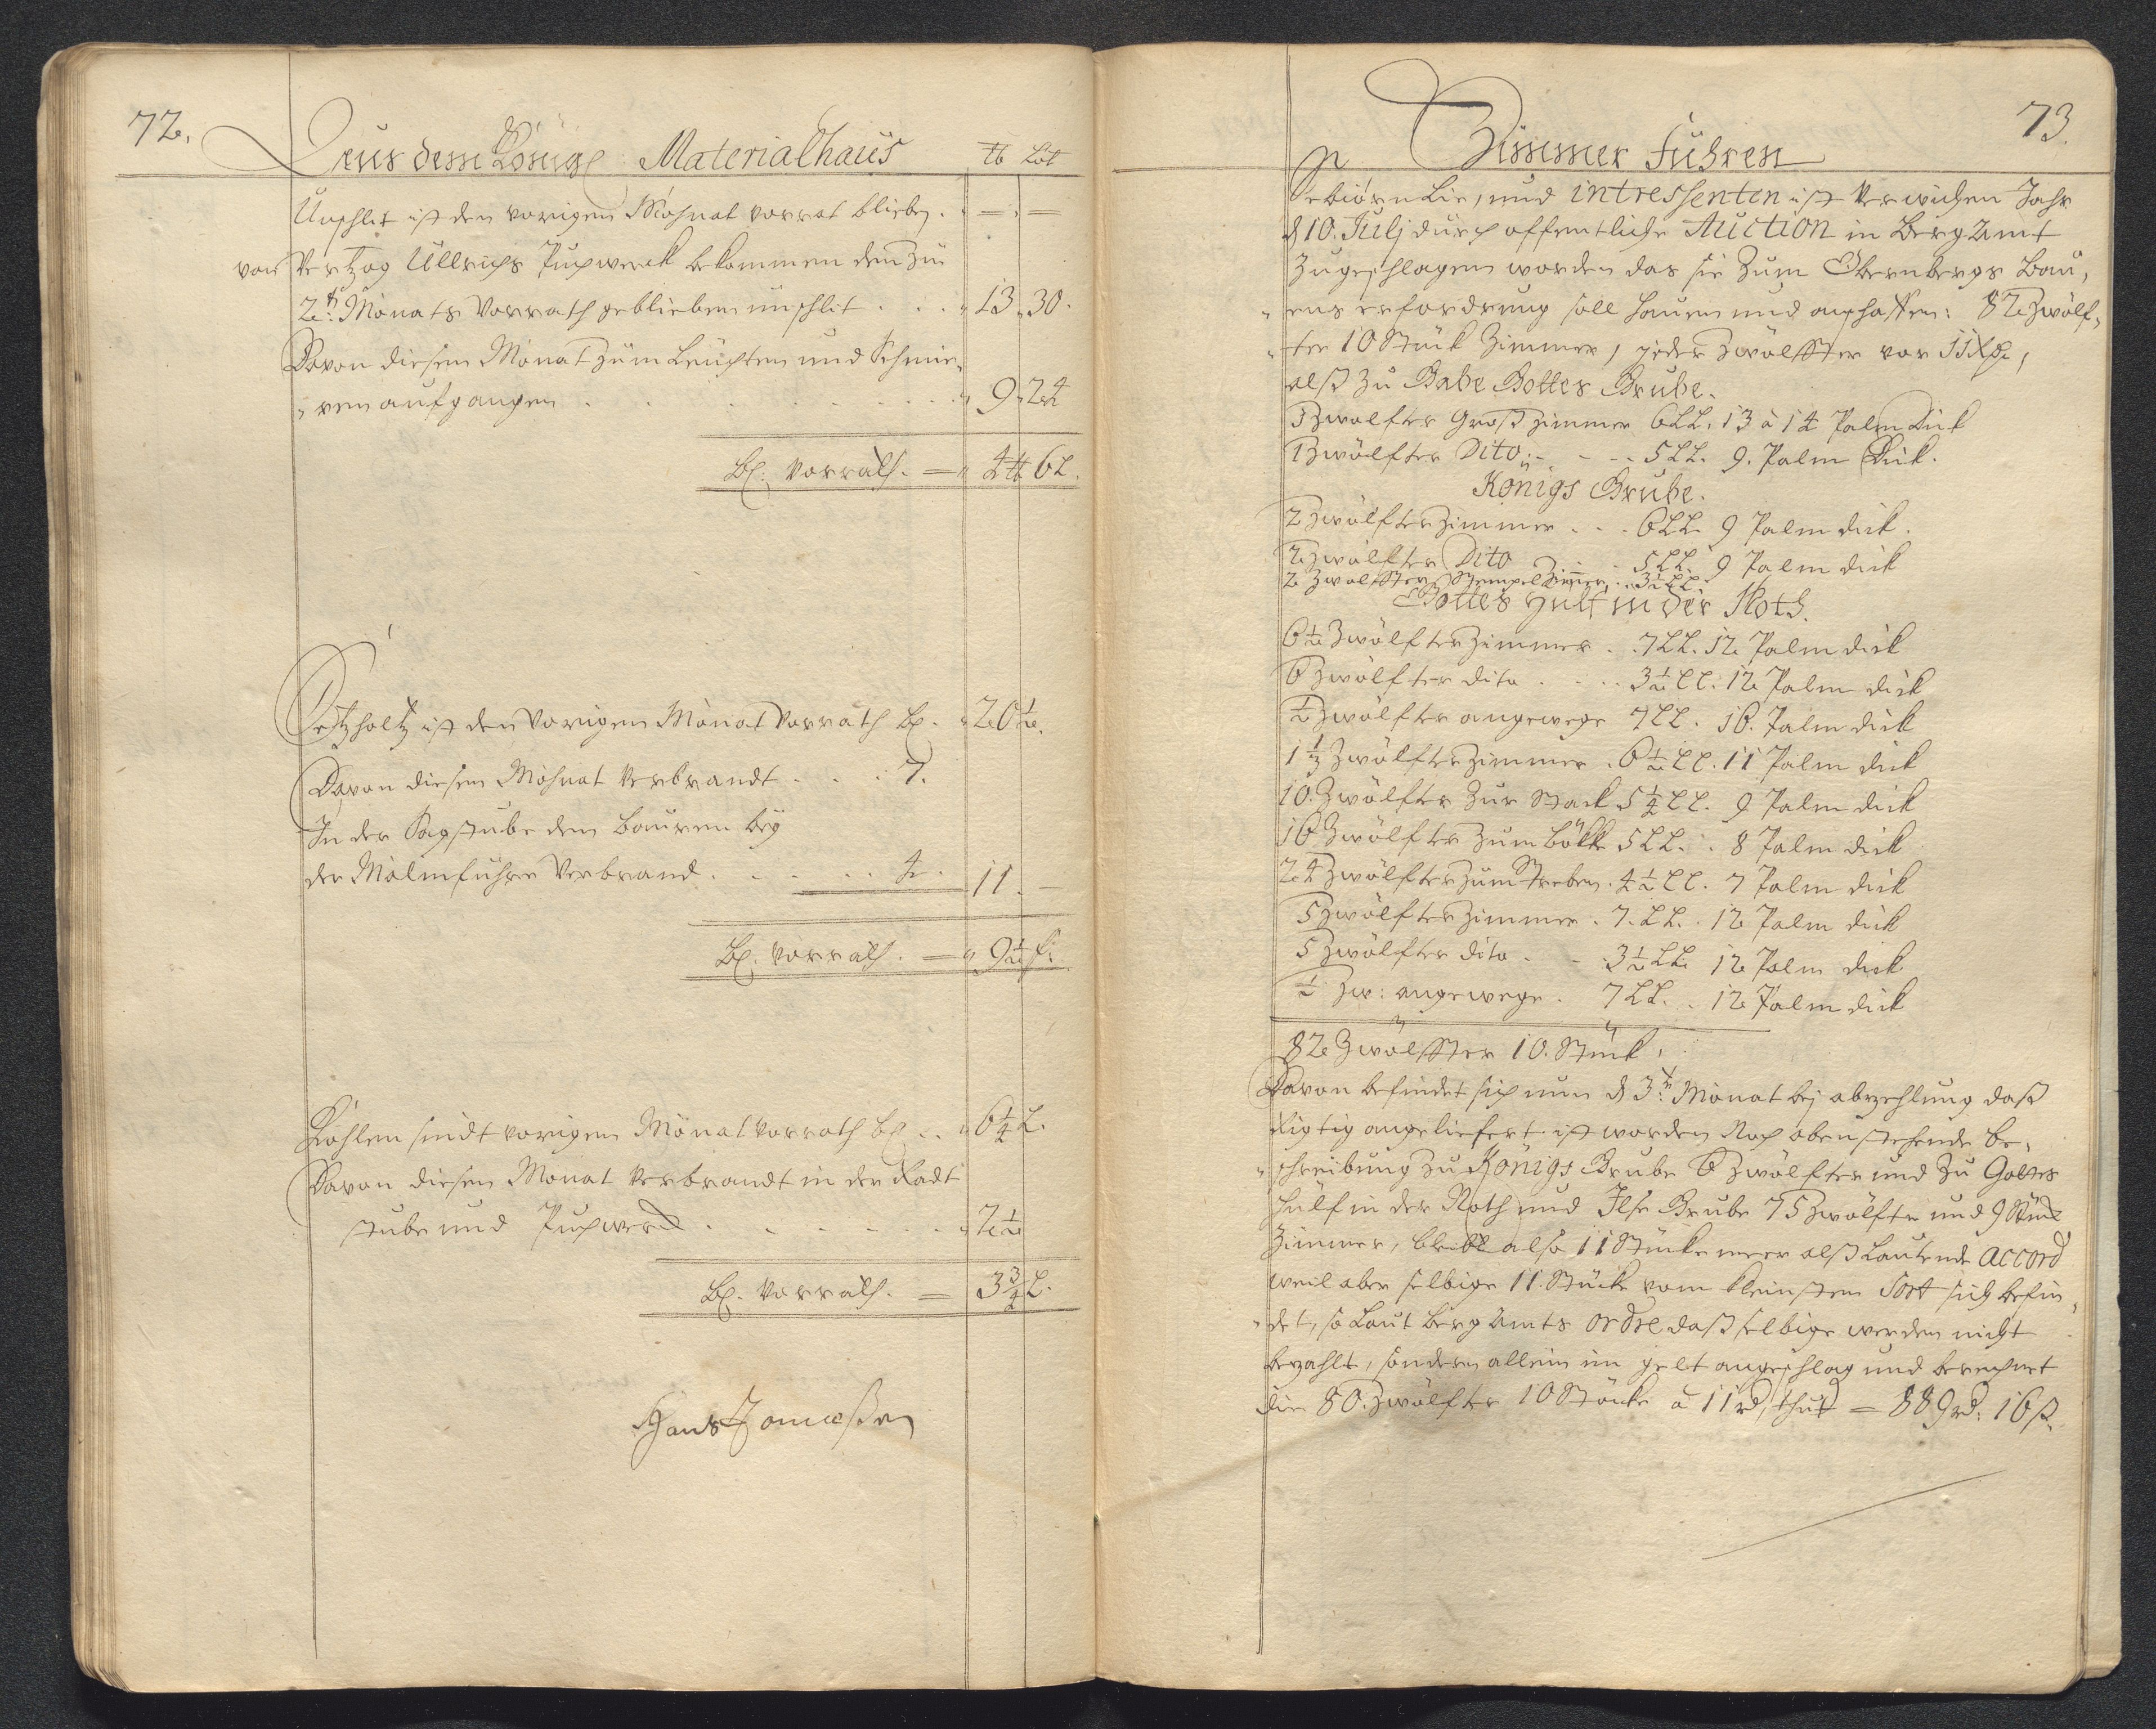 72.
Aus dem König Materialhaus ℔ Lot
Unschlit ist den vorigen Mohnat vorrat blieben. — —
von Hertzog Ullrichs Puchwerck bekommen dem zu
2t: Monats Vorrath geblieben unschlit . . . 13. 30.
Davon diesen Monat zum Leuchten und Schmie-
ren aufgangen . . . 9. 24
Bl: Vorrath. — 4℔ 6L.
Setzholtz ist den Vorigen Monat Vorrath bl. 20½.
Davon diesen Mohnat Verbrandt . . . 7.
In der Pagstube dem Bauren bey
der Malmfuhre Verbrand . . . 4. 11. —
Bl: Vorrath. — 9½ f:
Kohlen sindt vorigen Monat Vorrath bl . . 6¼ L.
Davon diesen Monat Verbrandt in der Radt
stube und Puchwerck . . . 2½
Bl. Vorrath. — 3¾ L.
Hans Tomeßen
73.
Zimmer Fuhren
Lie, und intressenten ist Verwichen Jahr
d 10. Julj durch offentliche Auction in Berg Amt
zugeschlagen worden das sie zum Obernbergs Bau-
ens erfordrung soll hauen und anschaffen: 82 Zwölf-
ter 10 Stück Zimmer, jeder Zwölffter vor 11 Rd,
alß zu Gabe Gottes Grube.
1 Zwölfter Groß Zimmer 6LL. 13 à 14 Palm Dick
1 Zwölfter Dito . - - - 5LL. 9. Palm Dick.
Königs Grube.
2 Zwölfter Zimmer . . . 6LL. 9 Palm dick.
2 Zwölfter Dito . . . 5LL. 9 Palm dick
2 Zwölffter Stempel Zimer, . . 3½ LL.
Gottes Hülf in der Noth.
6½ Zwölfter Zimmer . . 7LL. 12 Palm dick
6 Zwölfter dito . . . . 3½ LL. 12 Palm dick
½ Zwölfter angewege 7LL. 16. Palm dick
1⅓ Zwölfter Zimmer . 6½ LL. 11 Palm dick
10. Zwölfter Zur Stack 5¼ LL. 9 Palm dick
16 Zwölfter Zum Bökke 5LL. . 8 Palm dick
24 Zwölfter Zum Streben. 4½ LL. 7 Palm dick
5 Zwölfter Zimmer . 7. LL. . 12 Palm dick
5 Zwölfter dito . - . 3½ LL. 12 Palm dick
½ Zw: angewege . 7LL. . 12 Palm dick
82 Zwölffter 10. Stück,
Davon befindet sich nun d 3t: Monat bej abzehlung daß
Rigtig angeliefert ist worden Nach obenstehende be-
schreibung zu Königs Grube 6 Zwölfter und zu Gottes
Hülf in der Noth und Ilse Grube 75 Zwölfte und 9 Stück
Zimmer, bleibt also 11 Stücke meer alß Lautende Accord
weil aber selbige 11. Stücke vom kleinsten Sort sich befin-
det, so Laut Berg Amts ordre daß selbige werden nicht
bezahlt, sondern allein im gelt angeschlag und berechnet
die 80. Zwölfter 10 Stöcke à 11 rd, thut = 889 rd: 16 ß.